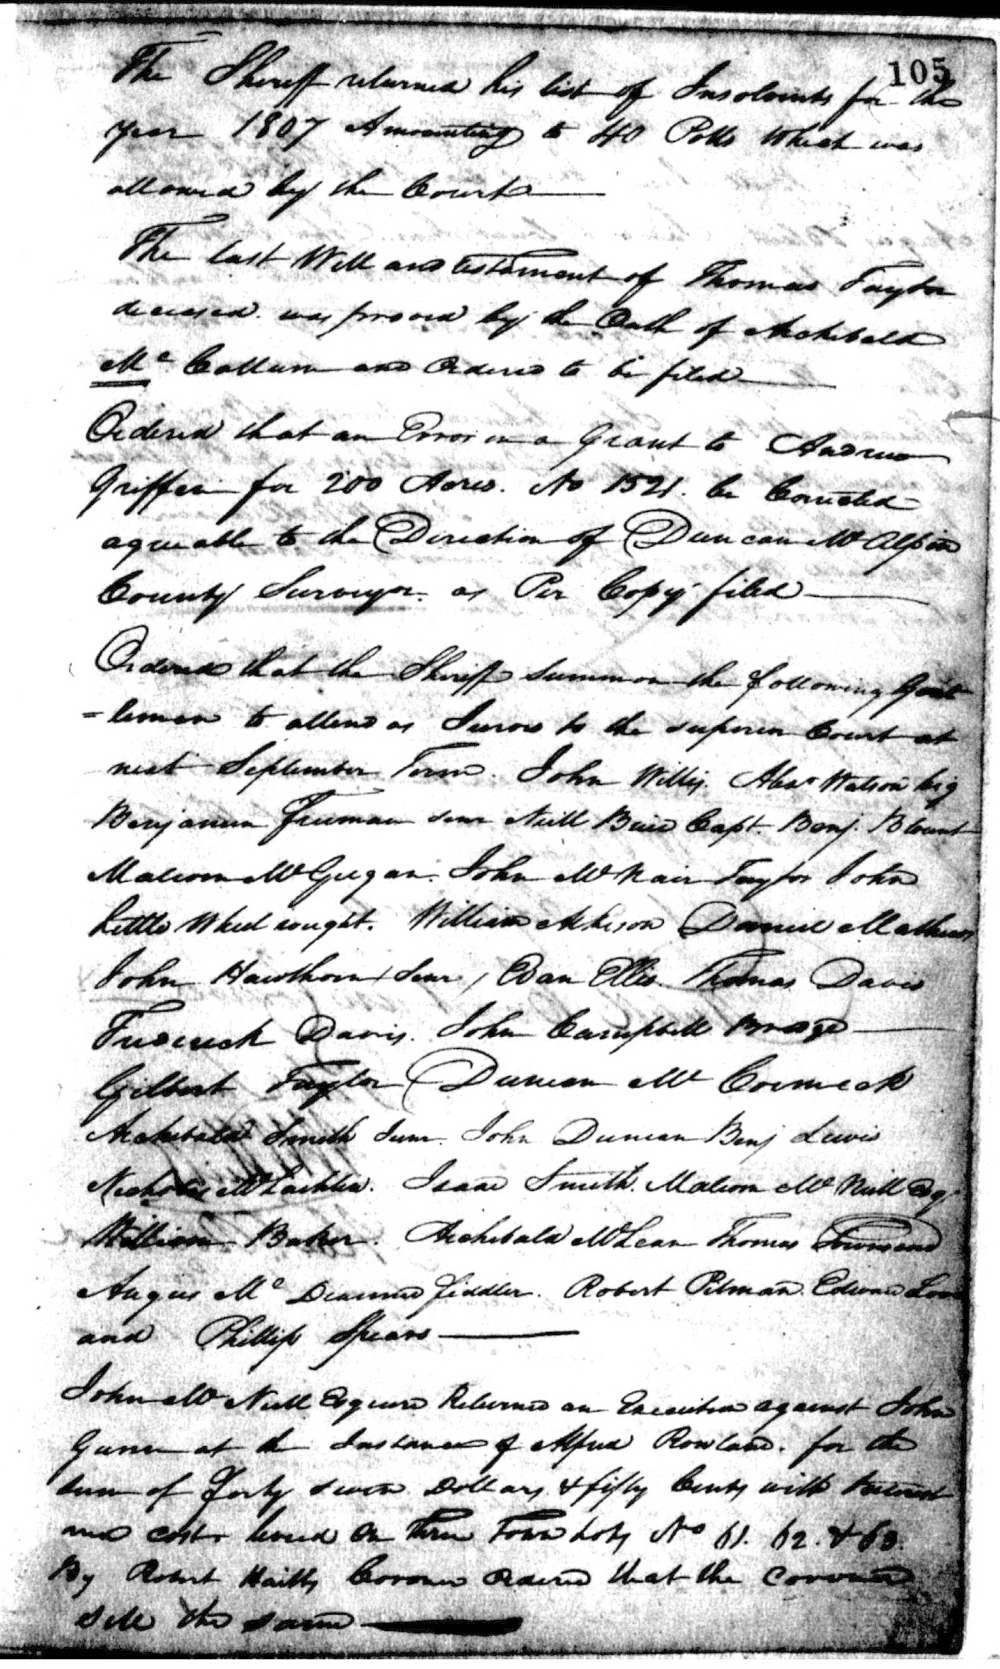 105
The Sheriff returned his list of Insolvents for the
year 1807 Amounting to 40 Polls Which was
allowed by the Court
The last Will and testament of Thomas Taylor
deceased was proved by the Oath of Archibald
Mc Callum and Ordered to be filed
Ordered that an Error in a Grant to Andrew
Griffin for 200 Acres. No 1521. be Corrected
agreeable to the Direction of Duncan Mc Alpin
County Surveyor. as Per Copy filed
Ordered that the Sheriff summon the following Gent
=lemen to attend as Jurors to the superior Court at
next September Term. John Willis. Alexr Watson big
Benjamin Freeman senr Neill Buie Capt. Benj. Blount
Malcom Mc Gugan. John Mc Nair Taylor John
Little Wheel wright. William Atkison Daniel Mathews
John Hawthorn Senr, Evan Ellis. Thomas Davis
Frederick Davis. John Campbell Bridge
Gilbert Taylor Duncan Mc Cormick
Archibald Smith Junr. John Duncan Benj Lewis
Nicholas McLachlin. Isaac Smith. Malcom Mc Neill Esqr
William Baker. Archibald McLean Thomas Townsend
Angus Mc Diarmed fiddler. Robert Pitman. Edward Love
and Phillip Spears
John Mc Neill Esquire Returned an Execution against John
Gunn at the Instance of Alfred Rowland. for the
sum of Forty seven Dollars & fifty Cents with Interest
and cost levied On Three Town Lots No 61. 62. & 63.
By Robert Haills Coroner Ordered that the Coroner
sell the same